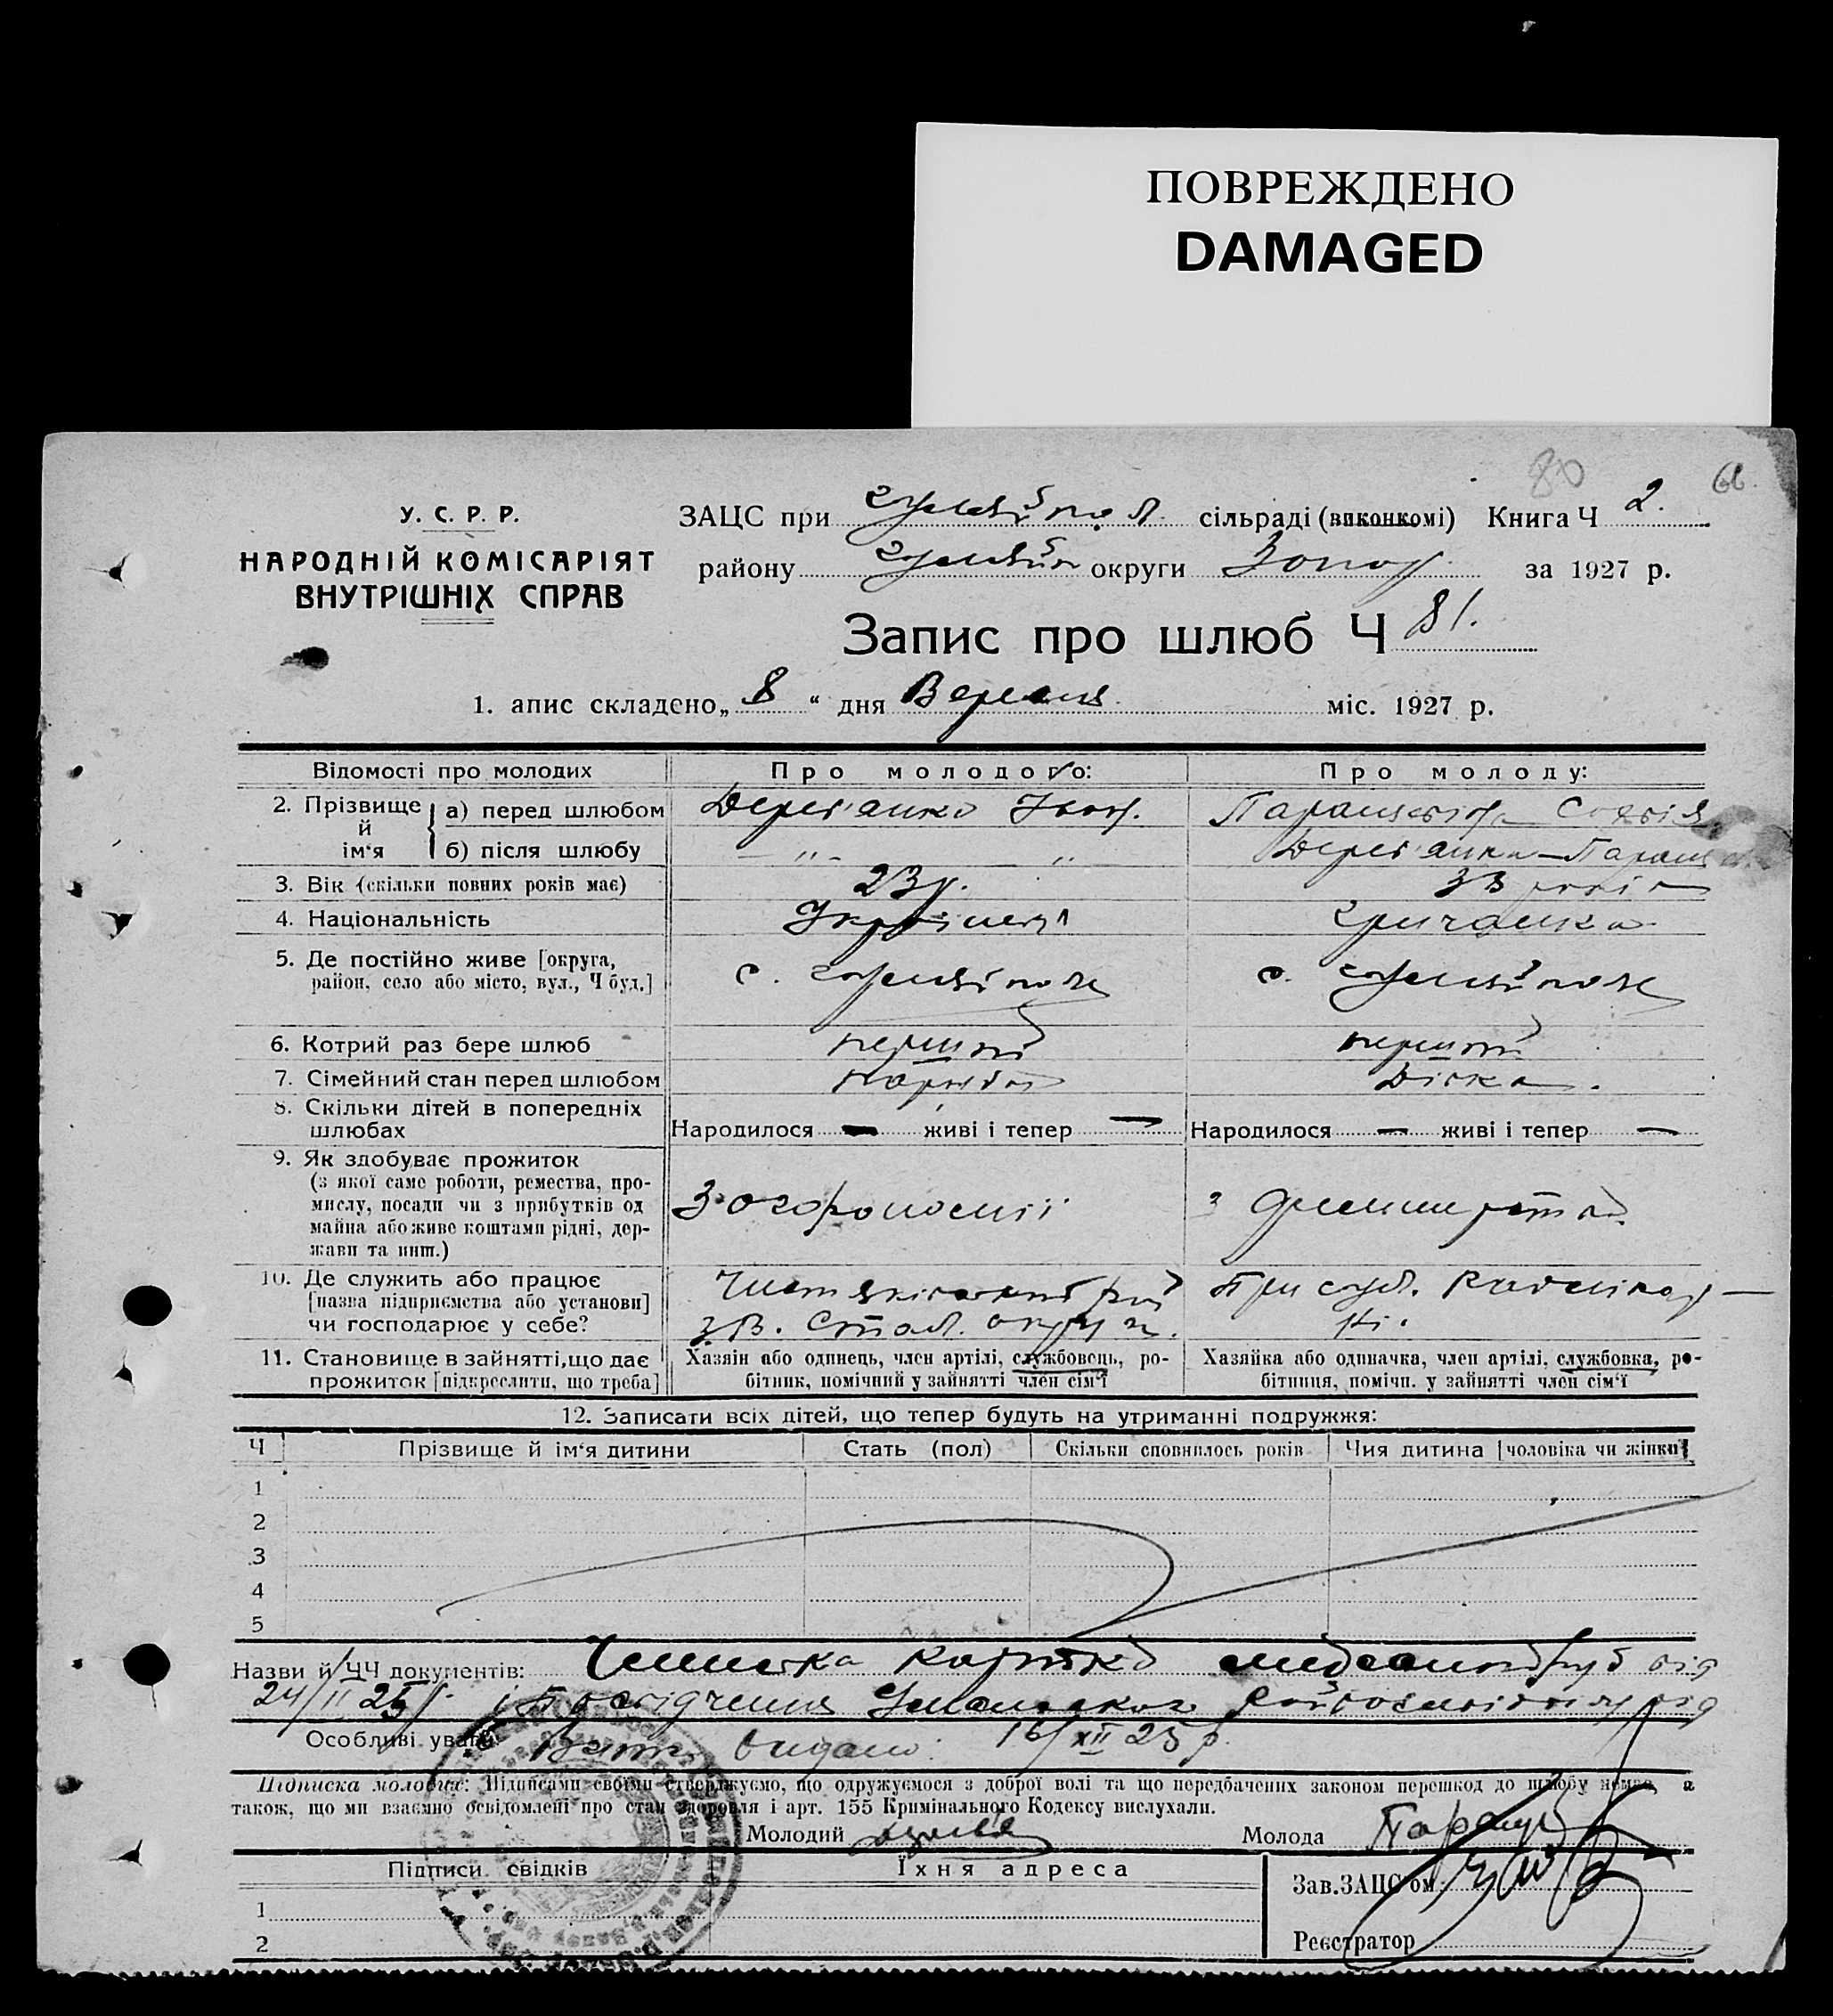 ПОВРЕЖДЕНО
DAMAGED
80
У. С. Р. Р.
НАРОДНІЙ КОМІСАРІЯТ
ВНУТРІШНІХ СПРАВ
ЗАЦС при Гуляйпол. сільраді (виконкомі) Книга Ч 2.
району Гуляйп округи Запор за 1927 р.
Запис про шлюб Ч 81.
1. апис складено „ 8 “ дня Вересня міс. 1927 р.
Відомості про молодих
Про молодого:
Про молоду:
2. Прізвище й ім‘я
а) перед шлюбом Дерев'янко Іван.
б) після шлюбу — „ — „
Софія
Дерев'янко — Паращ
3. Вік (скільки повних років має) 23 р. 33 роки
4. Національність Українець гричанка
5. Де постійно живе [округа, район, село або місто, вул., Ч буд.] с. Гуляйполе с. Гуляйполе
6. Котрий раз бере шлюб перший перший
7. Сімейний стан перед шлюбом парубок Дівка.
8. Скільки дітей в попередніх шлюбах
Народилося — живі і тепер — Народилося — живі і тепер —
9. Як здобуває прожиток
(з якої саме роботи, ремества, про-
мислу, посади чи з прибутків од
майна або живе коштами рідні, дер-
жави та инш.)
10. Де служить або працює
[назва підприємства або установи]
чи господарює у себе?
Стал. округи.
При
11. Становище в зайнятті, що дає
прожиток [підкреслити, що треба]
Хазяін або одинець, член артілі, службовець, ро-
бітник, помічний у зайнятті член сім‘ї
Хазяйка або одиначка, член артілі, службовка, ро-
бітниця, помічн. у зайнятті член сім‘ї
12. Записати всіх дітей, що тепер будуть на утриманні подружжя:
Ч Прізвище й ім‘я дитини Стать (пол) Скільки сповнилось років Чия дитина [чоловіка чи жінки]
1
2
3
4
5
Назви й ЧЧ документів: Членська картка від
24/II 25 р. і Посвідчення від
Особливі уваги: видано: 16/XII 25 р.
Підписка молодих: Підписами своїми стверджуємо, що одружуємося з доброї волі та що передбачених законом перешкод до шлюбу нема, а
також, що ми взаємно освідомлені про стан здоровля і арт. 155 Кримінального Кодексу вислухали.
Молодий
Молода
Підписи свідків
Їхня адреса
Зав. ЗАЦС‘ом
1
2
Реєстратор